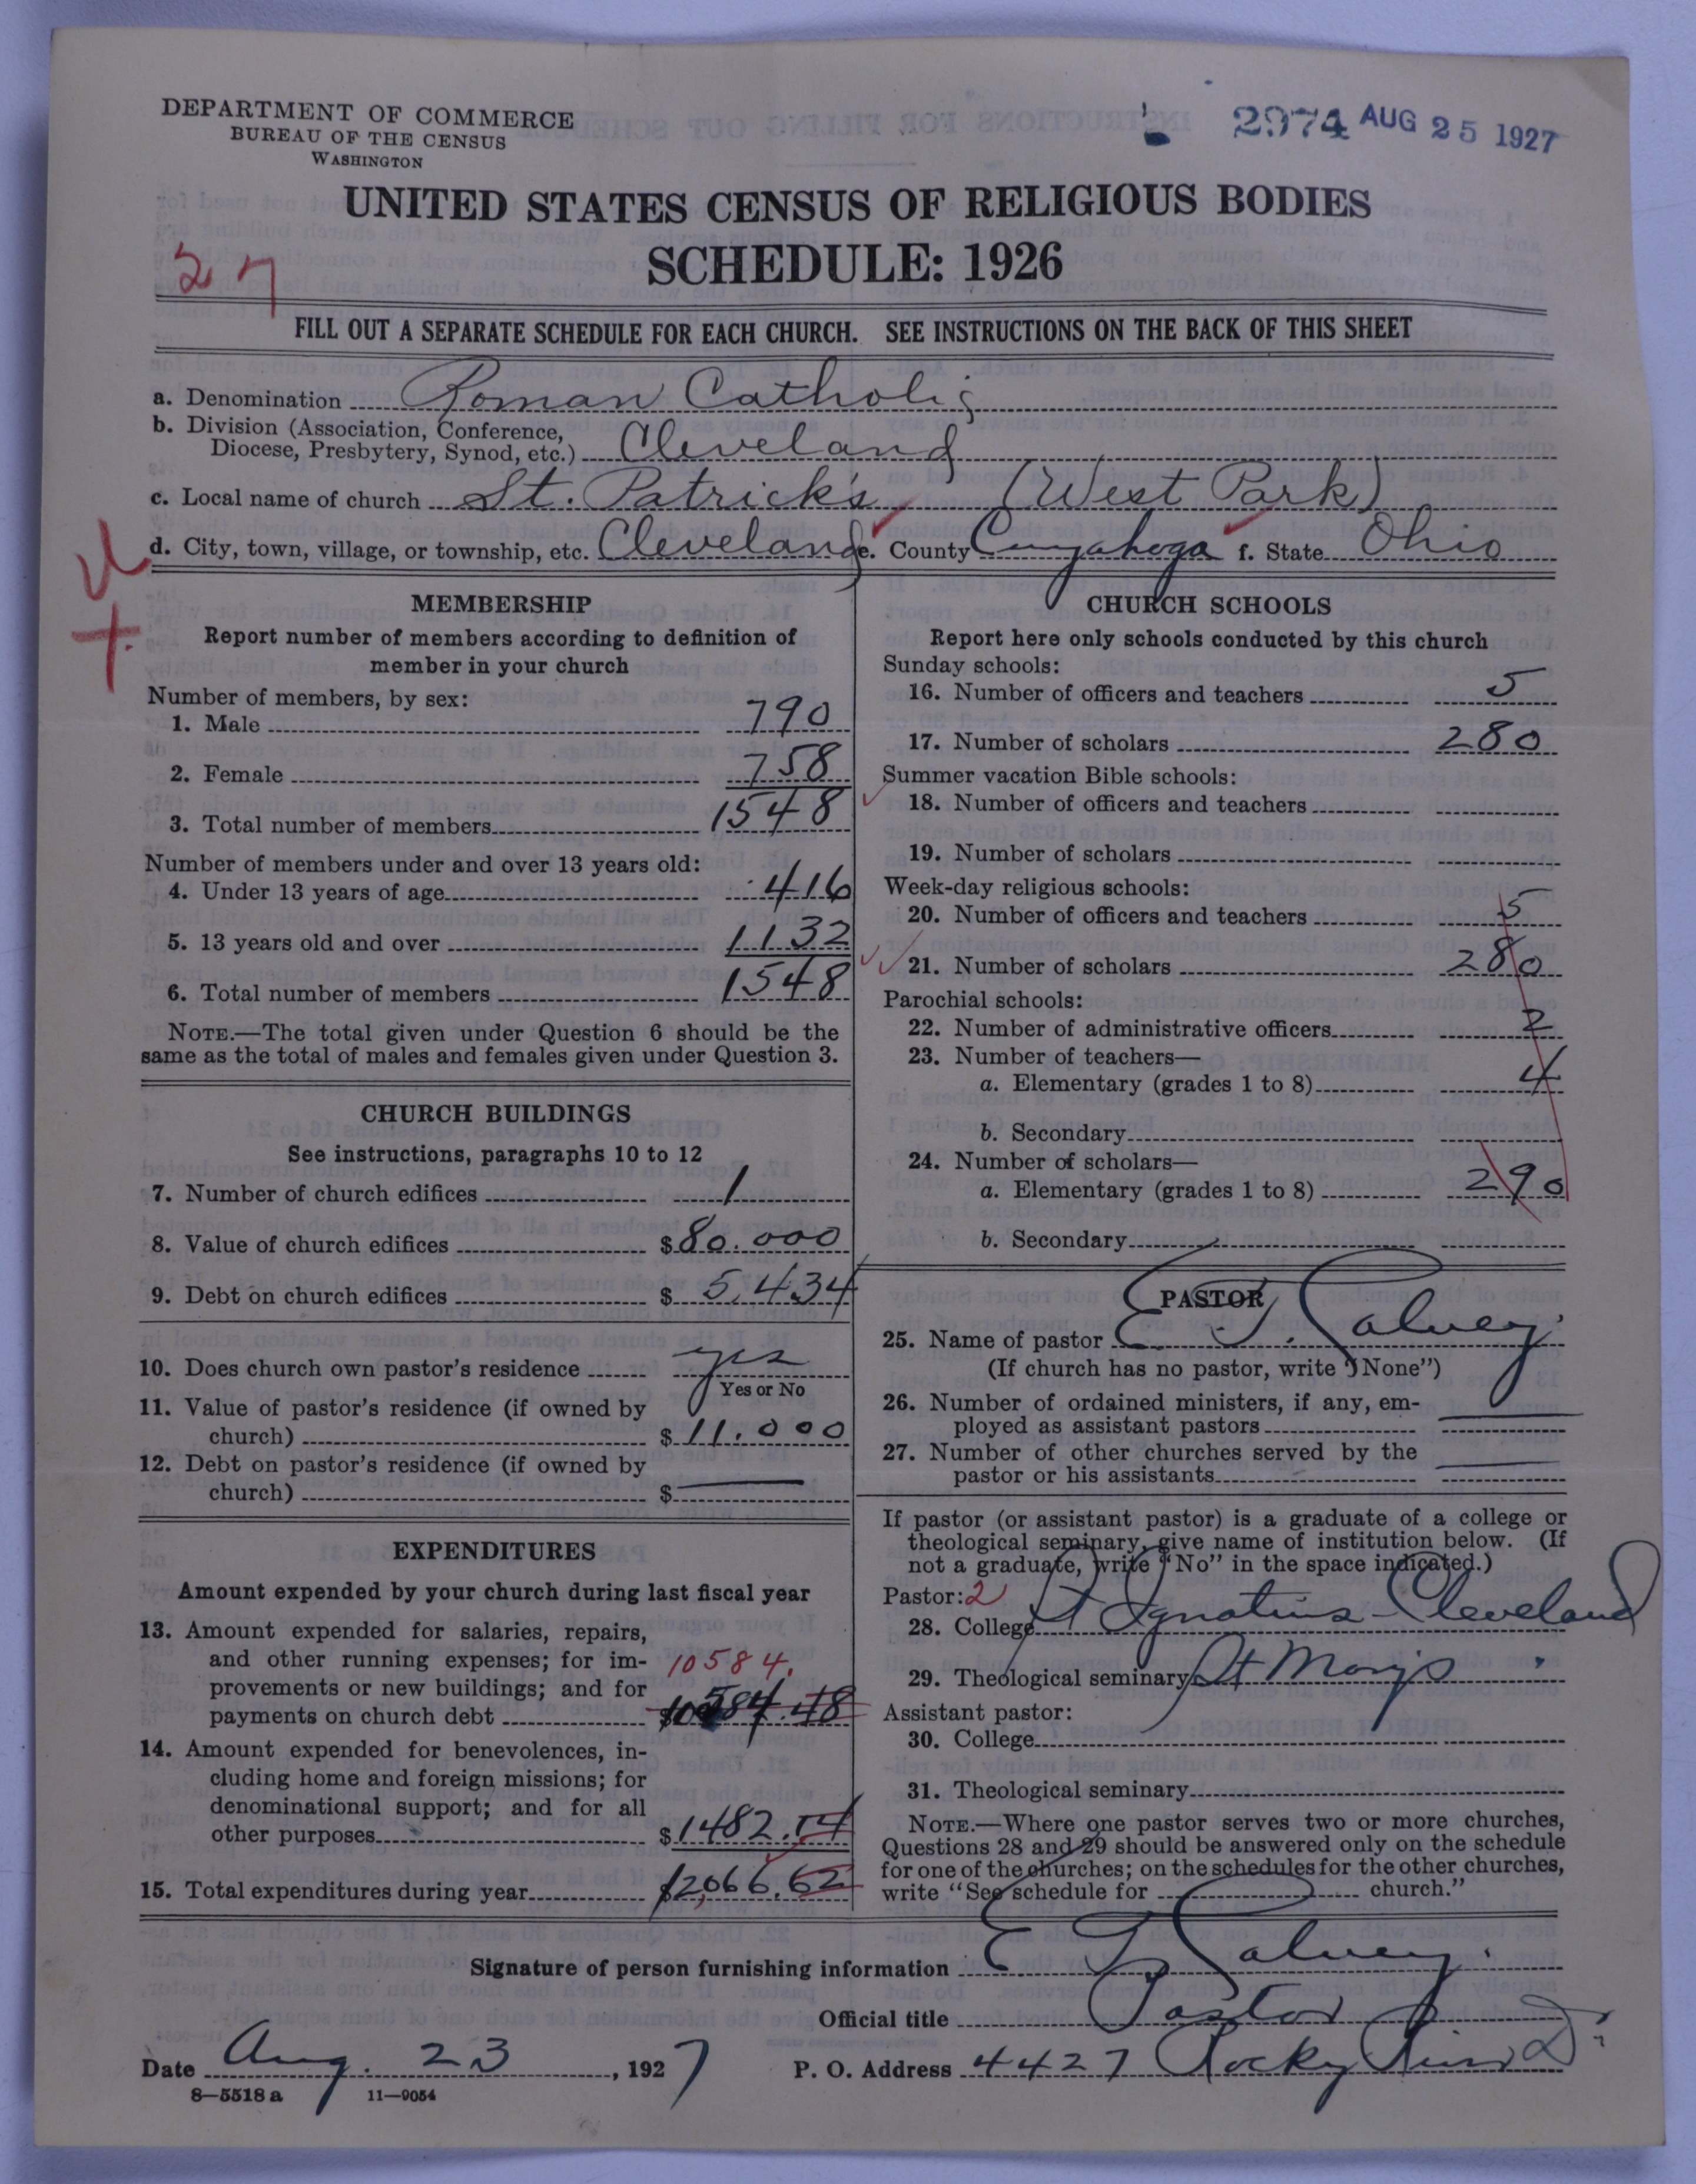 DEPARTMENT OF COMMERCE
BUREAU OF THE CENSUS
WASHINGTON
2974 AUG 25 1927
UNITED STATES CENSUS OF RELIGIOUS BODIES
SCHEDULE: 1926
27
FILL OUT A SEPARATE SCHEDULE FOR EACH CHURCH. SEE INSTRUCTIONS ON THE BACK OF THIS SHEET
a. Denomination Roman Catholic
b. Division (Association, Conference,
Diocese, Presbytery, Synod, etc.) Cleveland
c. Local name of church St. Patrick's (West Park)
d. City, town, village, or township, etc. Cleveland e. County Cuyahoga f. State Ohio
MEMBERSHIP
Report number of members according to definition of
member in your church
Number of members, by sex:
1. Male 790
2. Female 758
3. Total number of members 1548
Number of members under and over 13 years old:
4. Under 13 years of age 416
5. 13 years old and over 1132
6. Total number of members 1548
NOTE.—The total given under Question 6 should be the
same as the total of males and females given under Question 3.
CHURCH BUILDINGS
See instructions, paragraphs 10 to 12
7. Number of church edifices 1
8. Value of church edifices $80.000
9. Debt on church edifices $5,434
10. Does church own pastor's residence yes
Yes or No
11. Value of pastor's residence (if owned by
church) $11.000
12. Debt on pastor's residence (if owned by
church) $
EXPENDITURES
Amount expended by your church during last fiscal year
13. Amount expended for salaries, repairs,
and other running expenses; for im-
10584.
provements or new buildings; and for
payments on church debt $10584.48
14. Amount expended for benevolences, in-
cluding home and foreign missions; for
denominational support; and for all
other purposes $1482.14
15. Total expenditures during year $12066.62
CHURCH SCHOOLS
Report here only schools conducted by this church
Sunday schools:
16. Number of officers and teachers 5
17. Number of scholars 280
Summer vacation Bible schools:
18. Number of officers and teachers
19. Number of scholars
Week-day religious schools:
20. Number of officers and teachers 5
21. Number of scholars 280
Parochial schools:
22. Number of administrative officers 2
23. Number of teachers—
a. Elementary (grades 1 to 8) 4
b. Secondary
24. Number of scholars—
a. Elementary (grades 1 to 8) 290
b. Secondary
PASTOR
25. Name of pastor E. J. Calvey
(If church has no pastor, write "None")
26. Number of ordained ministers, if any, em-
ployed as assistant pastors
27. Number of other churches served by the
pastor or his assistants
If pastor (or assistant pastor) is a graduate of a college or
theological seminary, give name of institution below. (If
not a graduate, write "No" in the space indicated.)
Pastor: 2
28. College St Ignatius - Cleveland
29. Theological seminary St Marys
Assistant pastor:
30. College
31. Theological seminary
NOTE.—Where one pastor serves two or more churches,
Questions 28 and 29 should be answered only on the schedule
for one of the churches; on the schedules for the other churches,
write "See schedule for church."
Signature of person furnishing information E J Calvey.
Official title Pastor
Date Aug. 23, 1927 P. O. Address 4427 Rocky River Dr
8—5518 a 11—9054